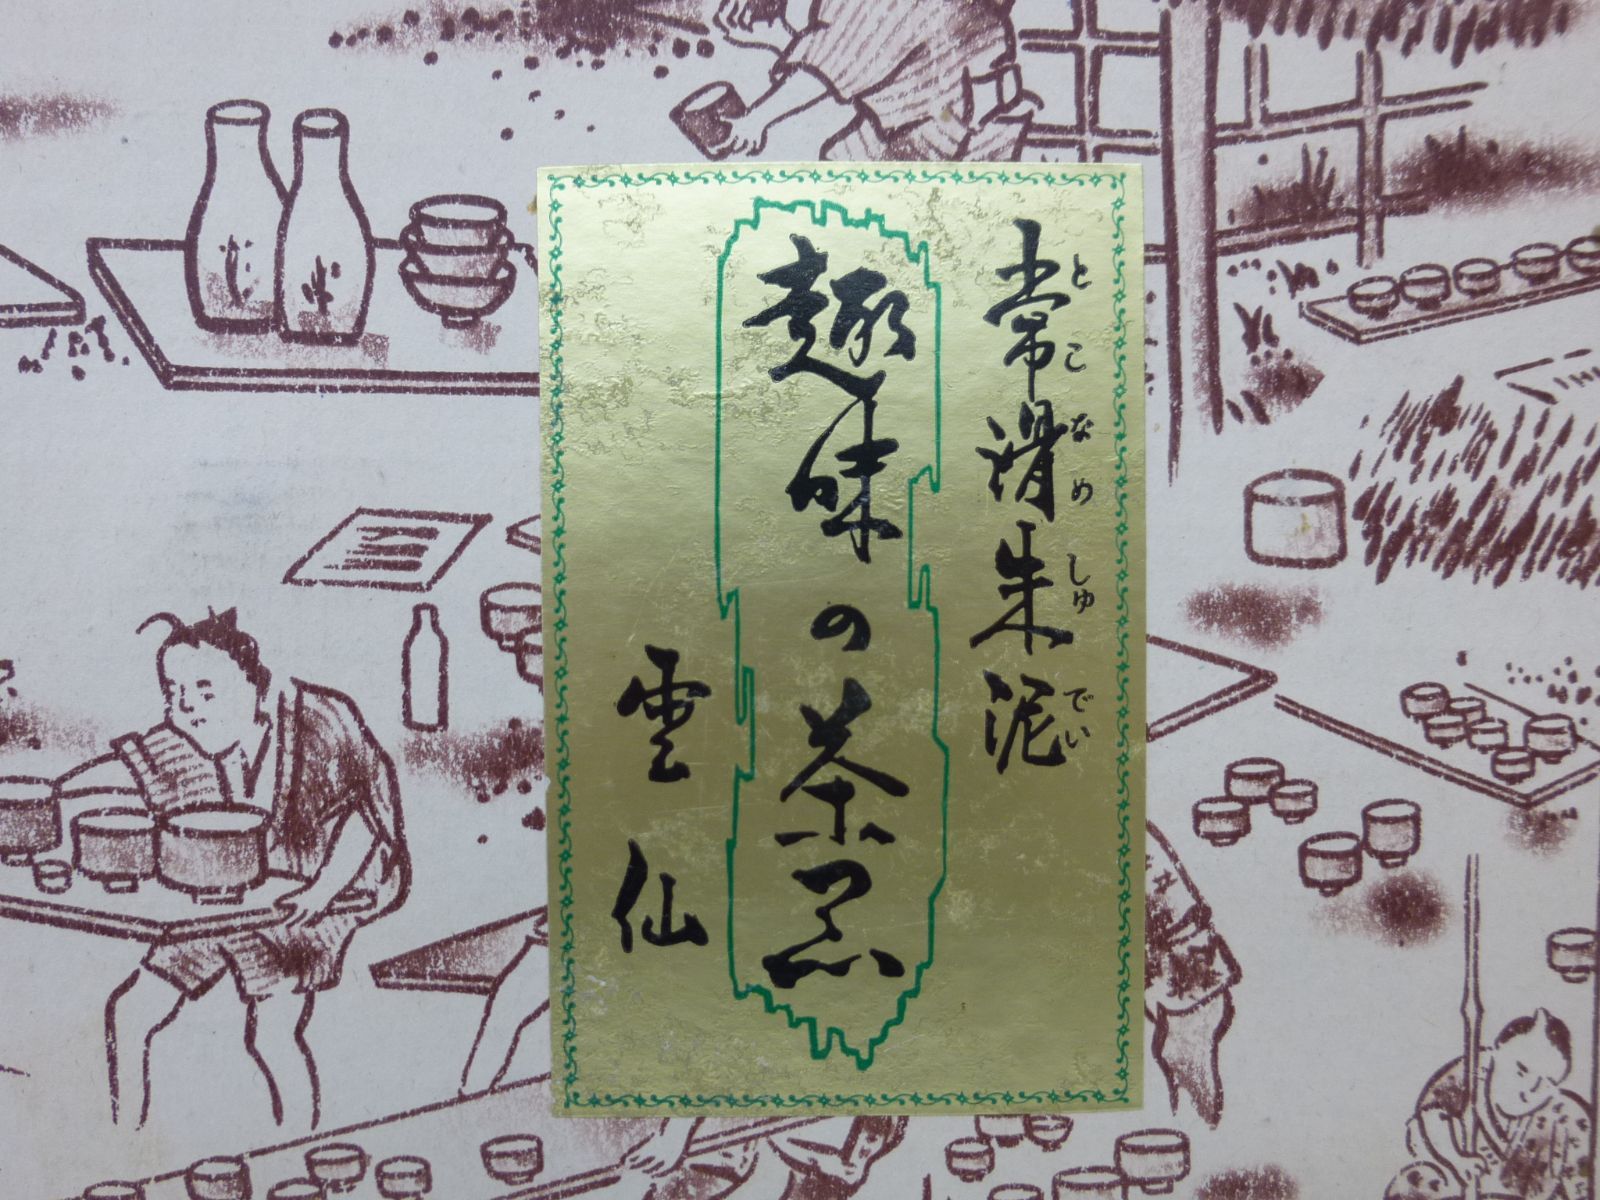 常滑朱泥
とこなめしゅでい
趣味の茶器
雲仙